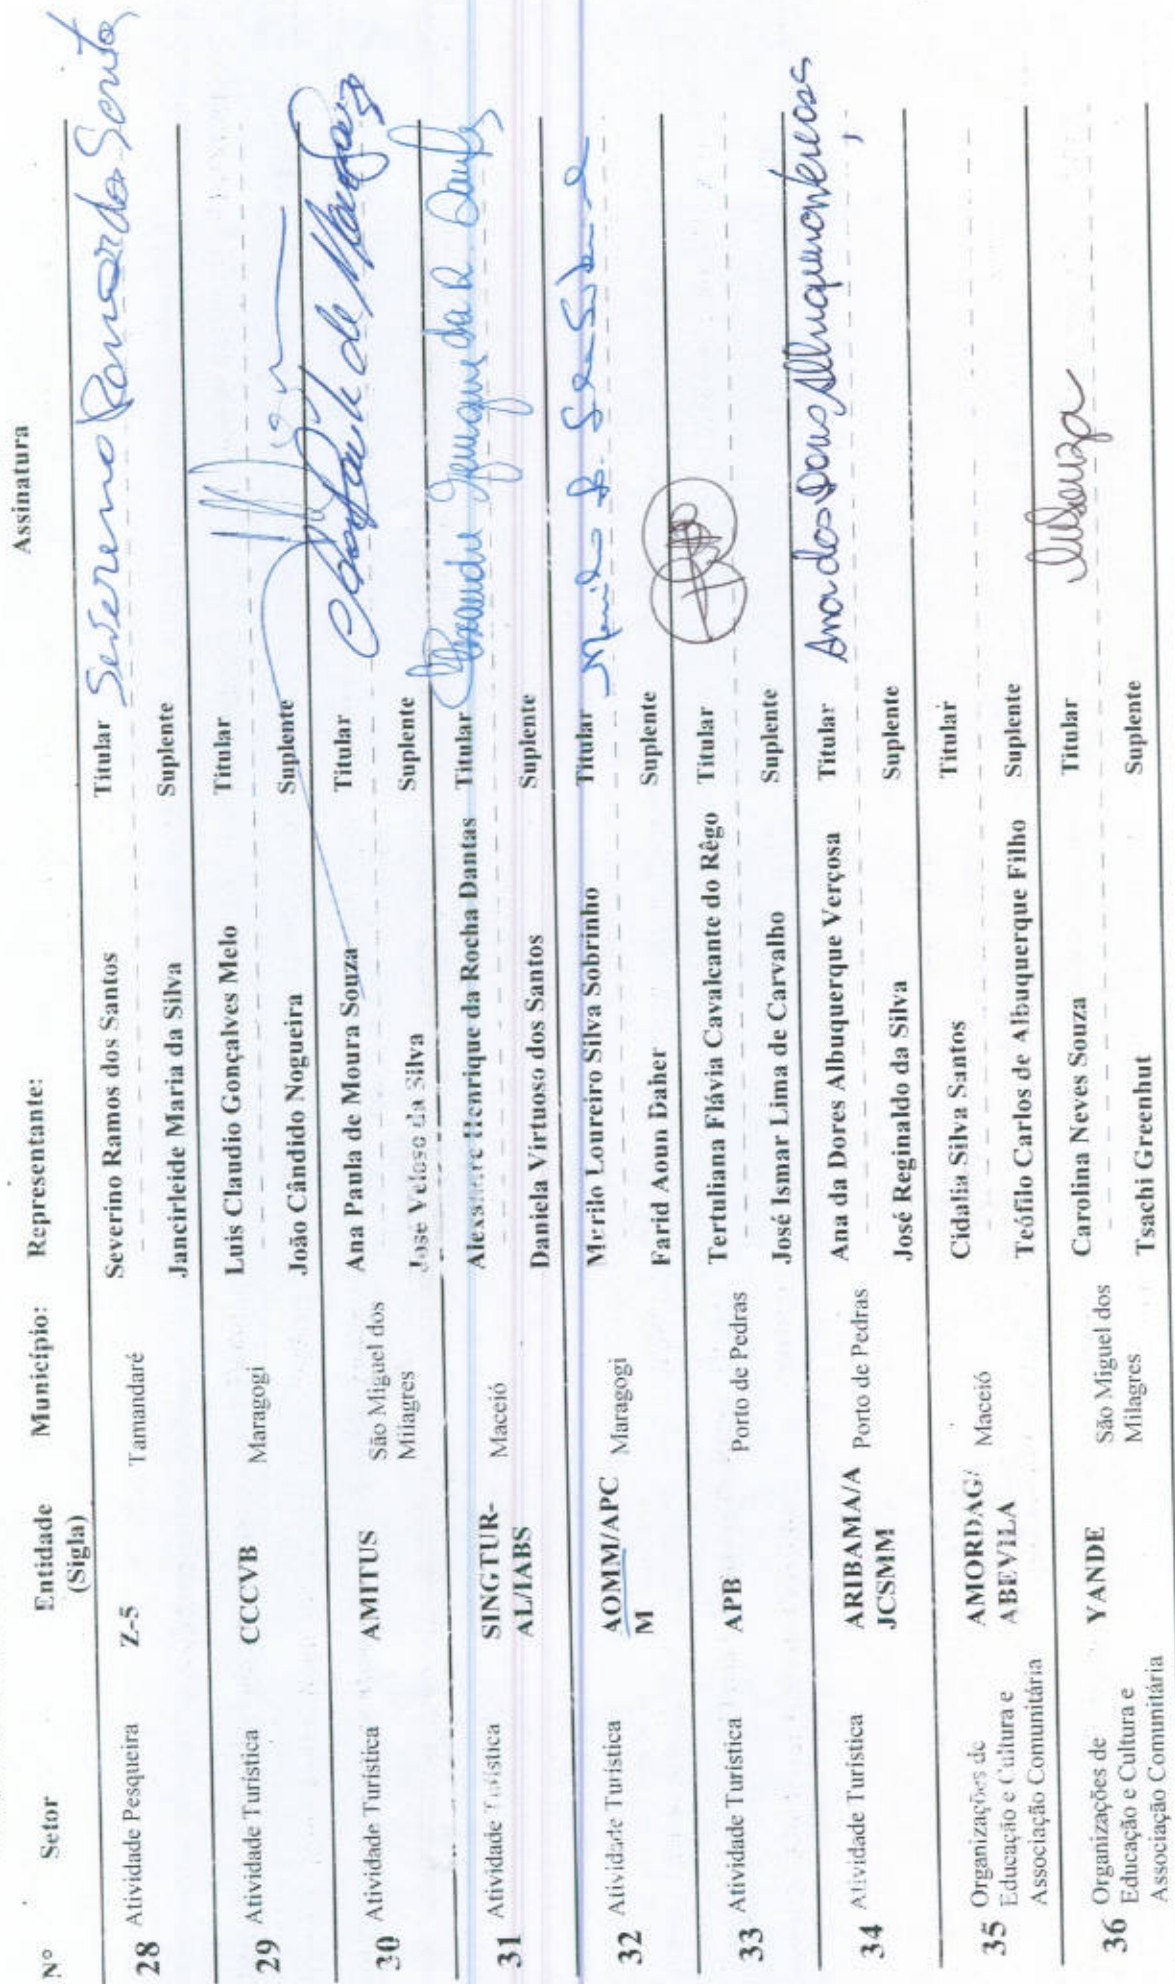 Assinatura
Nº Setor Entidade (Sigla) Município: Representante:
28 Atividade Pesqueira Z-5 Tamandaré Severino Ramos dos Santos Titular Severino Ramos do Santos
Jancirleide Maria da Silva Suplente
29 Atividade Turística CCCVB Maragogi Luis Claudio Gonçalves Melo Titular
João Cândido Nogueira Suplente
30 Atividade Turística AMITUS São Miguel dos Milagres Ana Paula de Moura Souza Titular
José Veloso da Silva Suplente
31 Atividade Turística SINGTUR-AL/IABS Maceió Alexandre Henrique da Rocha Dantas Titular
Daniela Virtuoso dos Santos Suplente
32 Atividade Turística AOMM/APCM Maragogi Murilo Loureiro Silva Sobrinho Titular
Farid Aoun Daher Suplente
33 Atividade Turística APB Porto de Pedras Tertuliana Flávia Cavalcante do Rêgo Titular
José Ismar Lima de Carvalho Suplente
34 Atividade Turística ARIBAMA/AJCSMM Porto de Pedras Ana da Dores Albuquerque Verçosa Titular
José Reginaldo da Silva Suplente
35 Organizações de Educação e Cultura e Associação Comunitária AMORDAG/ABEVILA Maceió Cidalia Silva Santos Titular
Teófilo Carlos de Albuquerque Filho Suplente
36 Organizações de Educação e Cultura e Associação Comunitária YANDE São Miguel dos Milagres Carolina Neves Souza Titular
Tsachi Greenhut Suplente